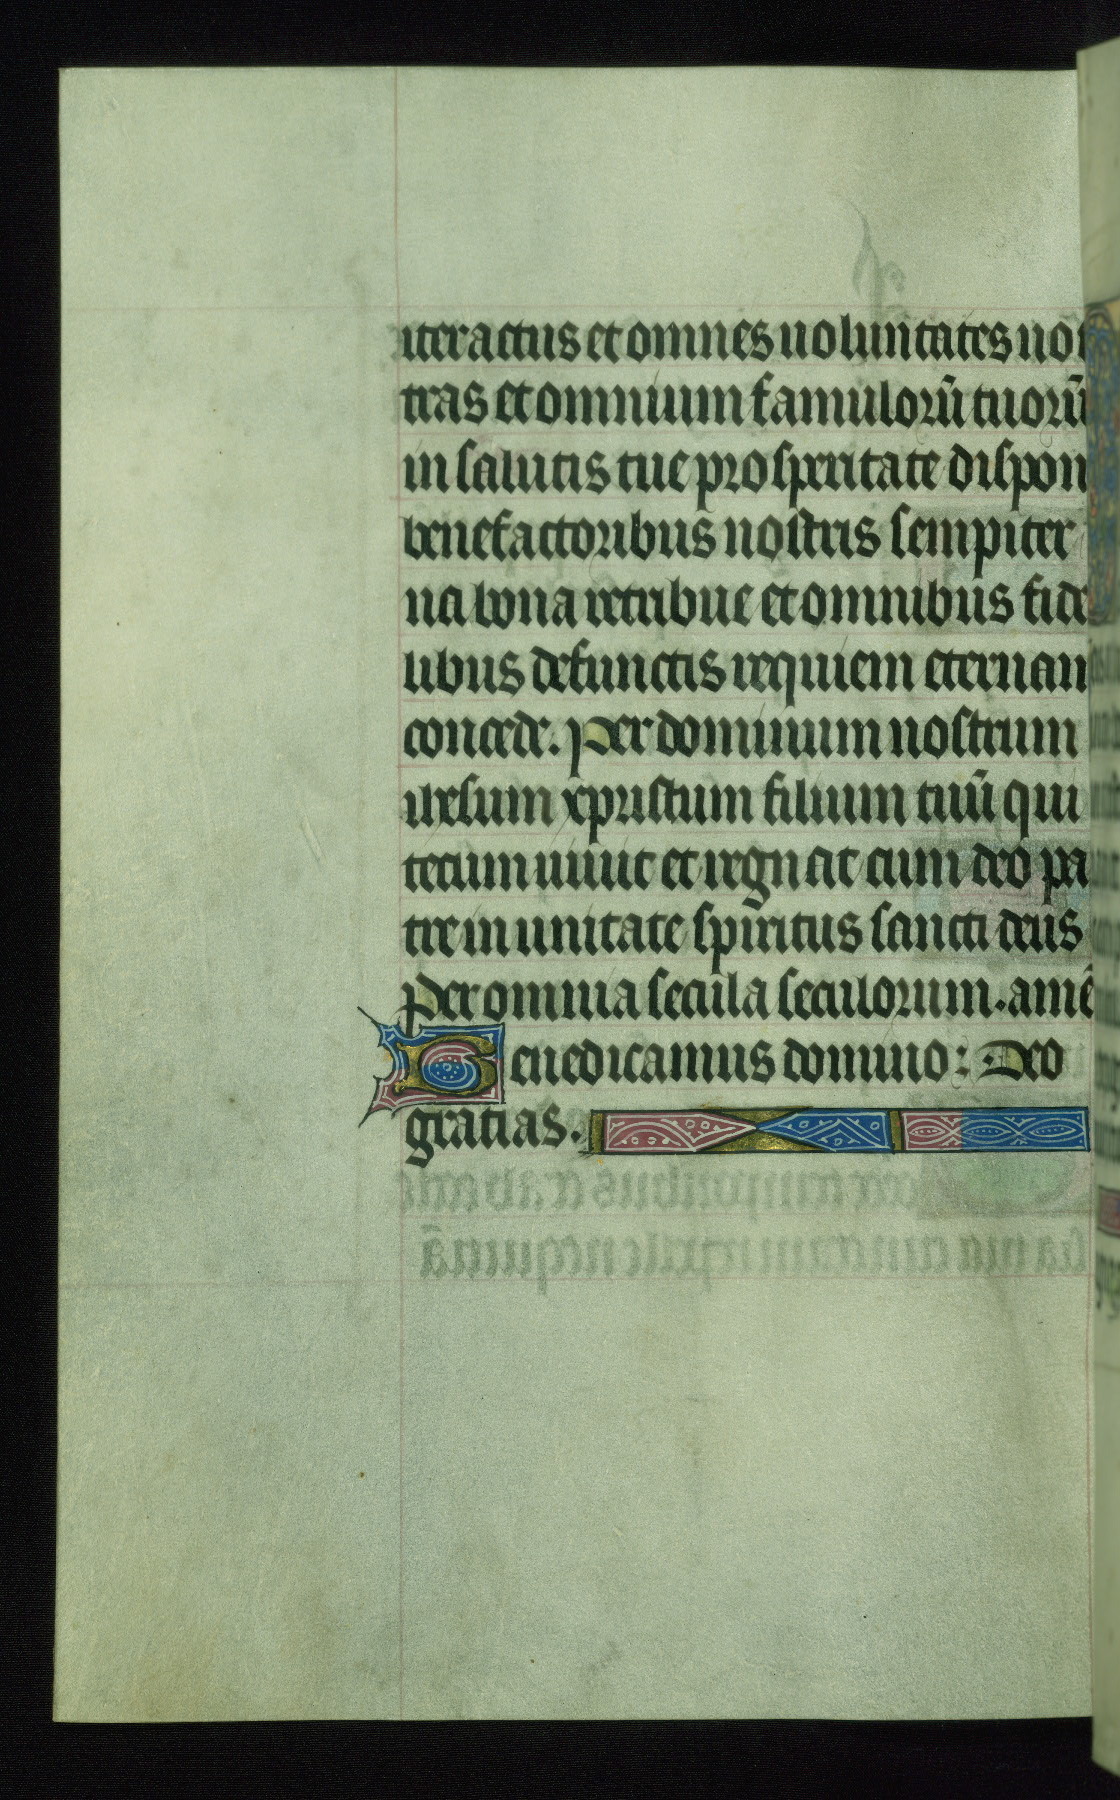 iter actus et omnes uoluntates nos
tras et omnium famulorū tuorū
in salutis tue prosperitate dispon
benefactoribus nostris sempiter
na bona retribue et omnibus fide
libus defunctis requiem eternam
concede. Per dominum nostrum
ihesum xpristum filium tuū qui
tecum uiuit et regnat cum deo pa
tre in unitate spiritus sancti deus
Per omnia secula seculorum. amē
Benedicamus domino: Deo
gratias.